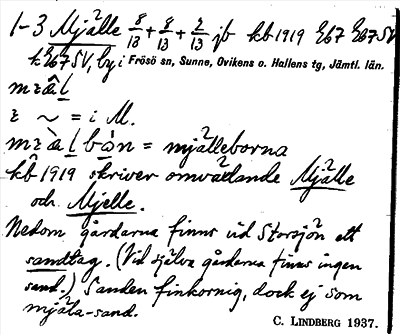 1-3 Mjälle 8/13 + 8/13 + 2/13 jb kb 1919 267 267 SV
k 267 SV, by i Frösö sn, Sunne, Ovikens o. Hallens tg, Jämtl. län.
= i M.
= mjälleborna
kb 1919 skriver omväxlande Mjälle
och Mjelle.
Nedom gårdarna finns vid Storsjön ett
sandtag. (Vid själva gårdarna finns ingen
sand.) Sanden finkornig, dock ej som
mjäla-sand.
C. LINDBERG 1937.